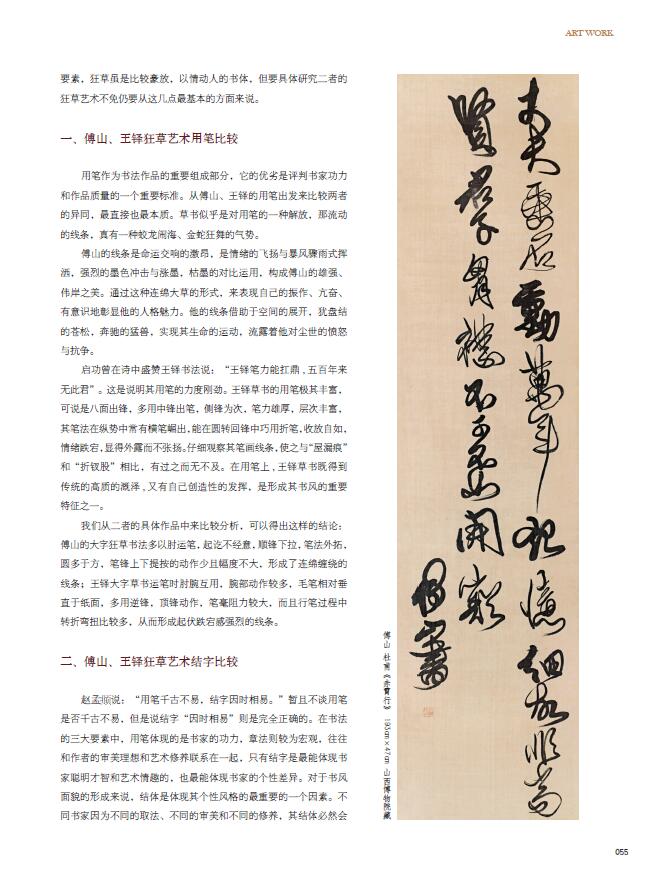 ART WORK
要素，狂草虽是比较豪放，以情动人的书体，但要具体研究二者的
狂草艺术不免仍要从这几点最基本的方面来说。
一、傅山、王铎狂草艺术用笔比较
用笔作为书法作品的重要组成部分，它的优劣是评判书家功力
和作品质量的一个重要标准。从傅山、王铎的用笔出发来比较两者
的异同，最直接也最本质。草书似乎是对用笔的一种解放，那流动
的线条，真有一种蛟龙闹海、金蛇狂舞的气势。
傅山的线条是命运交响的激昂，是情绪的飞扬与暴风骤雨式挥
洒，强烈的墨色冲击与涨墨，枯墨的对比运用，构成傅山的雄强、
伟岸之美。通过这种连绵大草的形式，来表现自己的振作、亢奋、
有意识地彰显他的人格魅力。他的线条借助于空间的展开，犹盘结
的苍松，奔驰的猛兽，实现其生命的运动，流露着他对尘世的愤怒
与抗争。
启功曾在诗中盛赞王铎书法说：“王铎笔力能扛鼎，五百年来
无此君”。这是说明其用笔的力度刚劲。王铎草书的用笔极其丰富，
可说是八面出锋，多用中锋出笔，侧锋为次，笔力雄厚，层次丰富，
其笔法在纵势中常有横笔崛出，能在圆转回锋中巧用折笔，收放自如，
情绪跌宕，显得外露而不张扬。仔细观察其笔画线条，使之与“屋漏痕”
和“折钗股”相比，有过之而无不及。在用笔上，王铎草书既得到
传统的高质的溉泽，又有自己创造性的发挥，是形成其书风的重要
特征之一。
我们从二者的具体作品中来比较分析，可以得出这样的结论：
傅山的大字狂草书法多以肘运笔，起讫不经意，顺锋下拉，笔法外拓，
圆多于方，笔锋上下提按的动作少且幅度不大，形成了连绵缠绕的
线条；王铎大字草书运笔时肘腕互用，腕部动作较多，毛笔相对垂
直于纸面，多用逆锋，顶锋动作，笔毫阻力较大，而且行笔过程中
转折弯扭比较多，从而形成起伏跌宕感强烈的线条。
二、傅山、王铎狂草艺术结字比较
赵孟頫说：“用笔千古不易，结字因时相易。”暂且不谈用笔
是否千古不易，但是说结字“因时相易”则是完全正确的。在书法
的三大要素中，用笔体现的是书家的功力，章法则较为宏观，往往
和作者的审美理想和艺术修养联系在一起，只有结字是最能体现书
家聪明才智和艺术情趣的，也最能体现书家的个性差异。对于书风
面貌的形成来说，结体是体现其个性风格的最重要的一个因素。不
同书家因为不同的取法、不同的审美和不同的修养，其结体必然会
丈夫垂名動萬年記憶細故非高
賢君子胸襟不可不開
傅山書
傅山 杜甫《赤霄行》 195cm×47cm 山西博物院藏
055